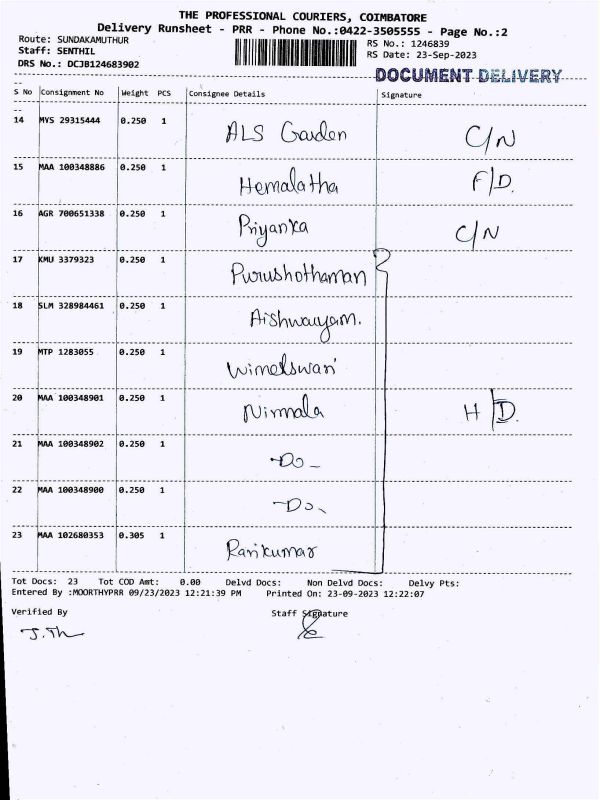 THE PROFESSIONAL COURIERS, COIMBATORE
Delivery Runsheet - PRR - Phone No.:0422-3505555 - Page No.:2
Route: SUNDAKAMUTHUR RS No.: 1246839
Staff: SENTHIL RS Date: 23-Sep-2023
DRS No.: DCJB124683902
DOCUMENT DELIVERY
S No Consignment No Weight PCS Consignee Details Signature
14 MYS 29315444 0.250 1 ALS Garden C/N
15 MAA 100348886 0.250 1 Hemalatha F/D.
16 AGR 700651338 0.250 1 Priyanka C/N
17 KMU 3379323 0.250 1 Purushothaman
18 SLM 328984461 0.250 1 Aishwaryam.
19 MTP 1283055 0.250 1
20 MAA 100348901 0.250 1 Nirmala H/D.
21 MAA 100348902 0.250 1 -Do-
22 MAA 100348900 0.250 1 -Do-
23 MAA 102680353 0.305 1 Ravikumar
Tot Docs: 23 Tot COD Amt: 0.00 Delvd Docs: Non Delvd Docs: Delvy Pts:
Entered By :MOORTHYPRR 09/23/2023 12:21:39 PM Printed On: 23-09-2023 12:22:07
Verified By Staff Signature